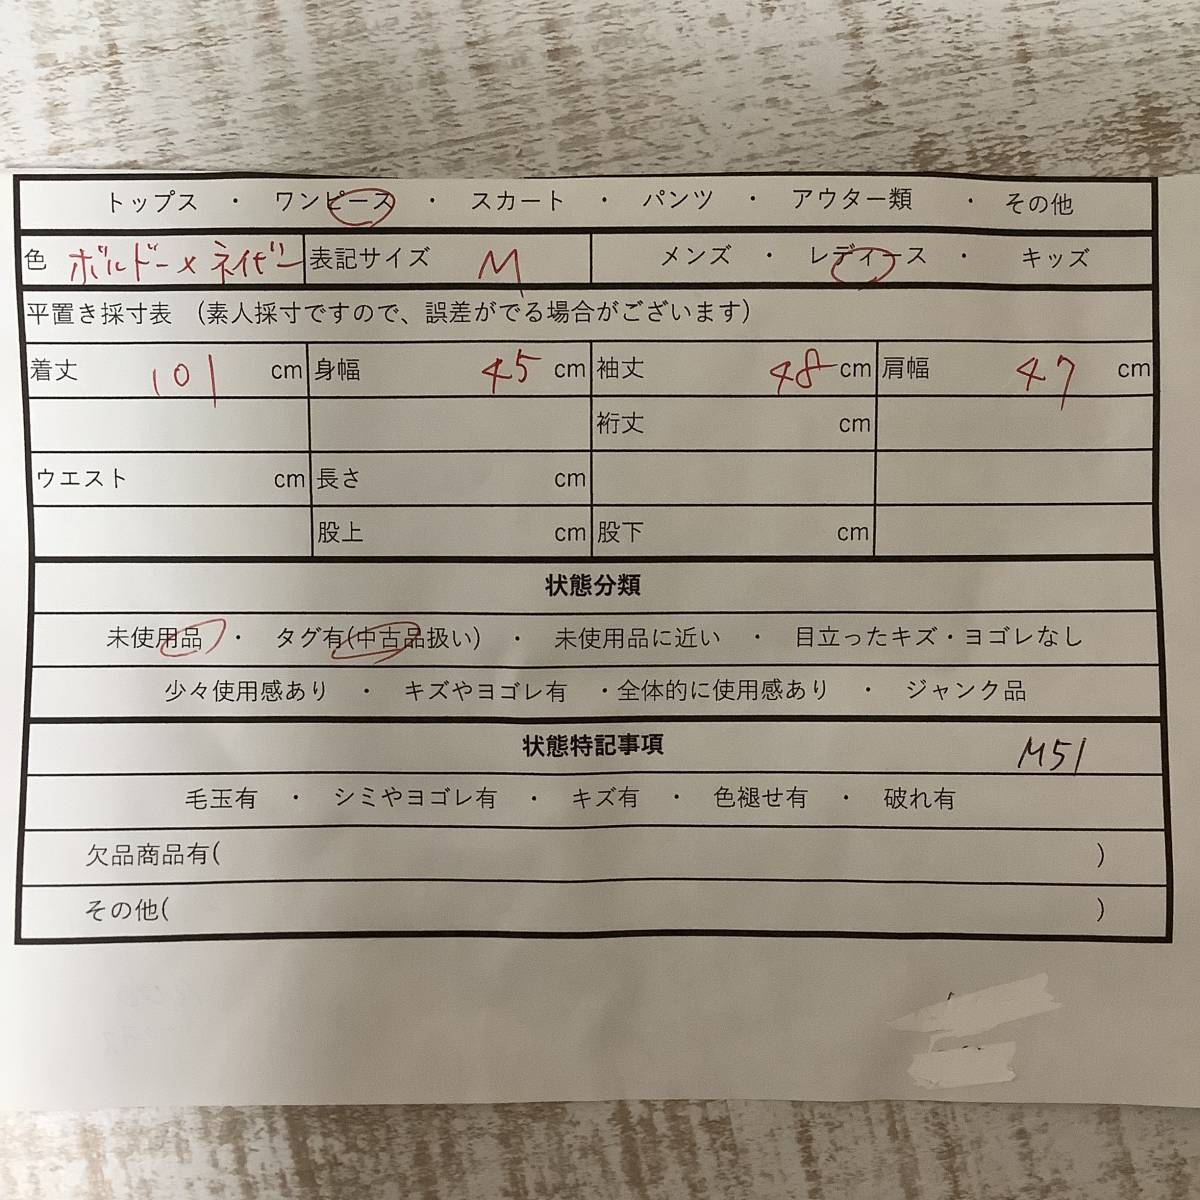 トップス ・ ワンピース ・ スカート ・ パンツ ・ アウター類 ・ その他
色 ボルドー×ネイビー 表記サイズ M メンズ ・ レディース ・ キッズ
平置き採寸表 (素人採寸ですので、誤差がでる場合がございます)
着丈 101 cm 身幅 45 cm 袖丈 48 cm 肩幅 47 cm
裄丈 cm
ウエスト cm 長さ cm
股上 cm 股下 cm
状態分類
未使用品 ・ タグ有(中古品扱い) ・ 未使用品に近い ・ 目立ったキズ・ヨゴレなし
少々使用感あり ・ キズやヨゴレ有 ・全体的に使用感あり ・ ジャンク品
状態特記事項 M51
毛玉有 ・ シミやヨゴレ有 ・ キズ有 ・ 色褪せ有 ・ 破れ有
欠品商品有( )
その他( )